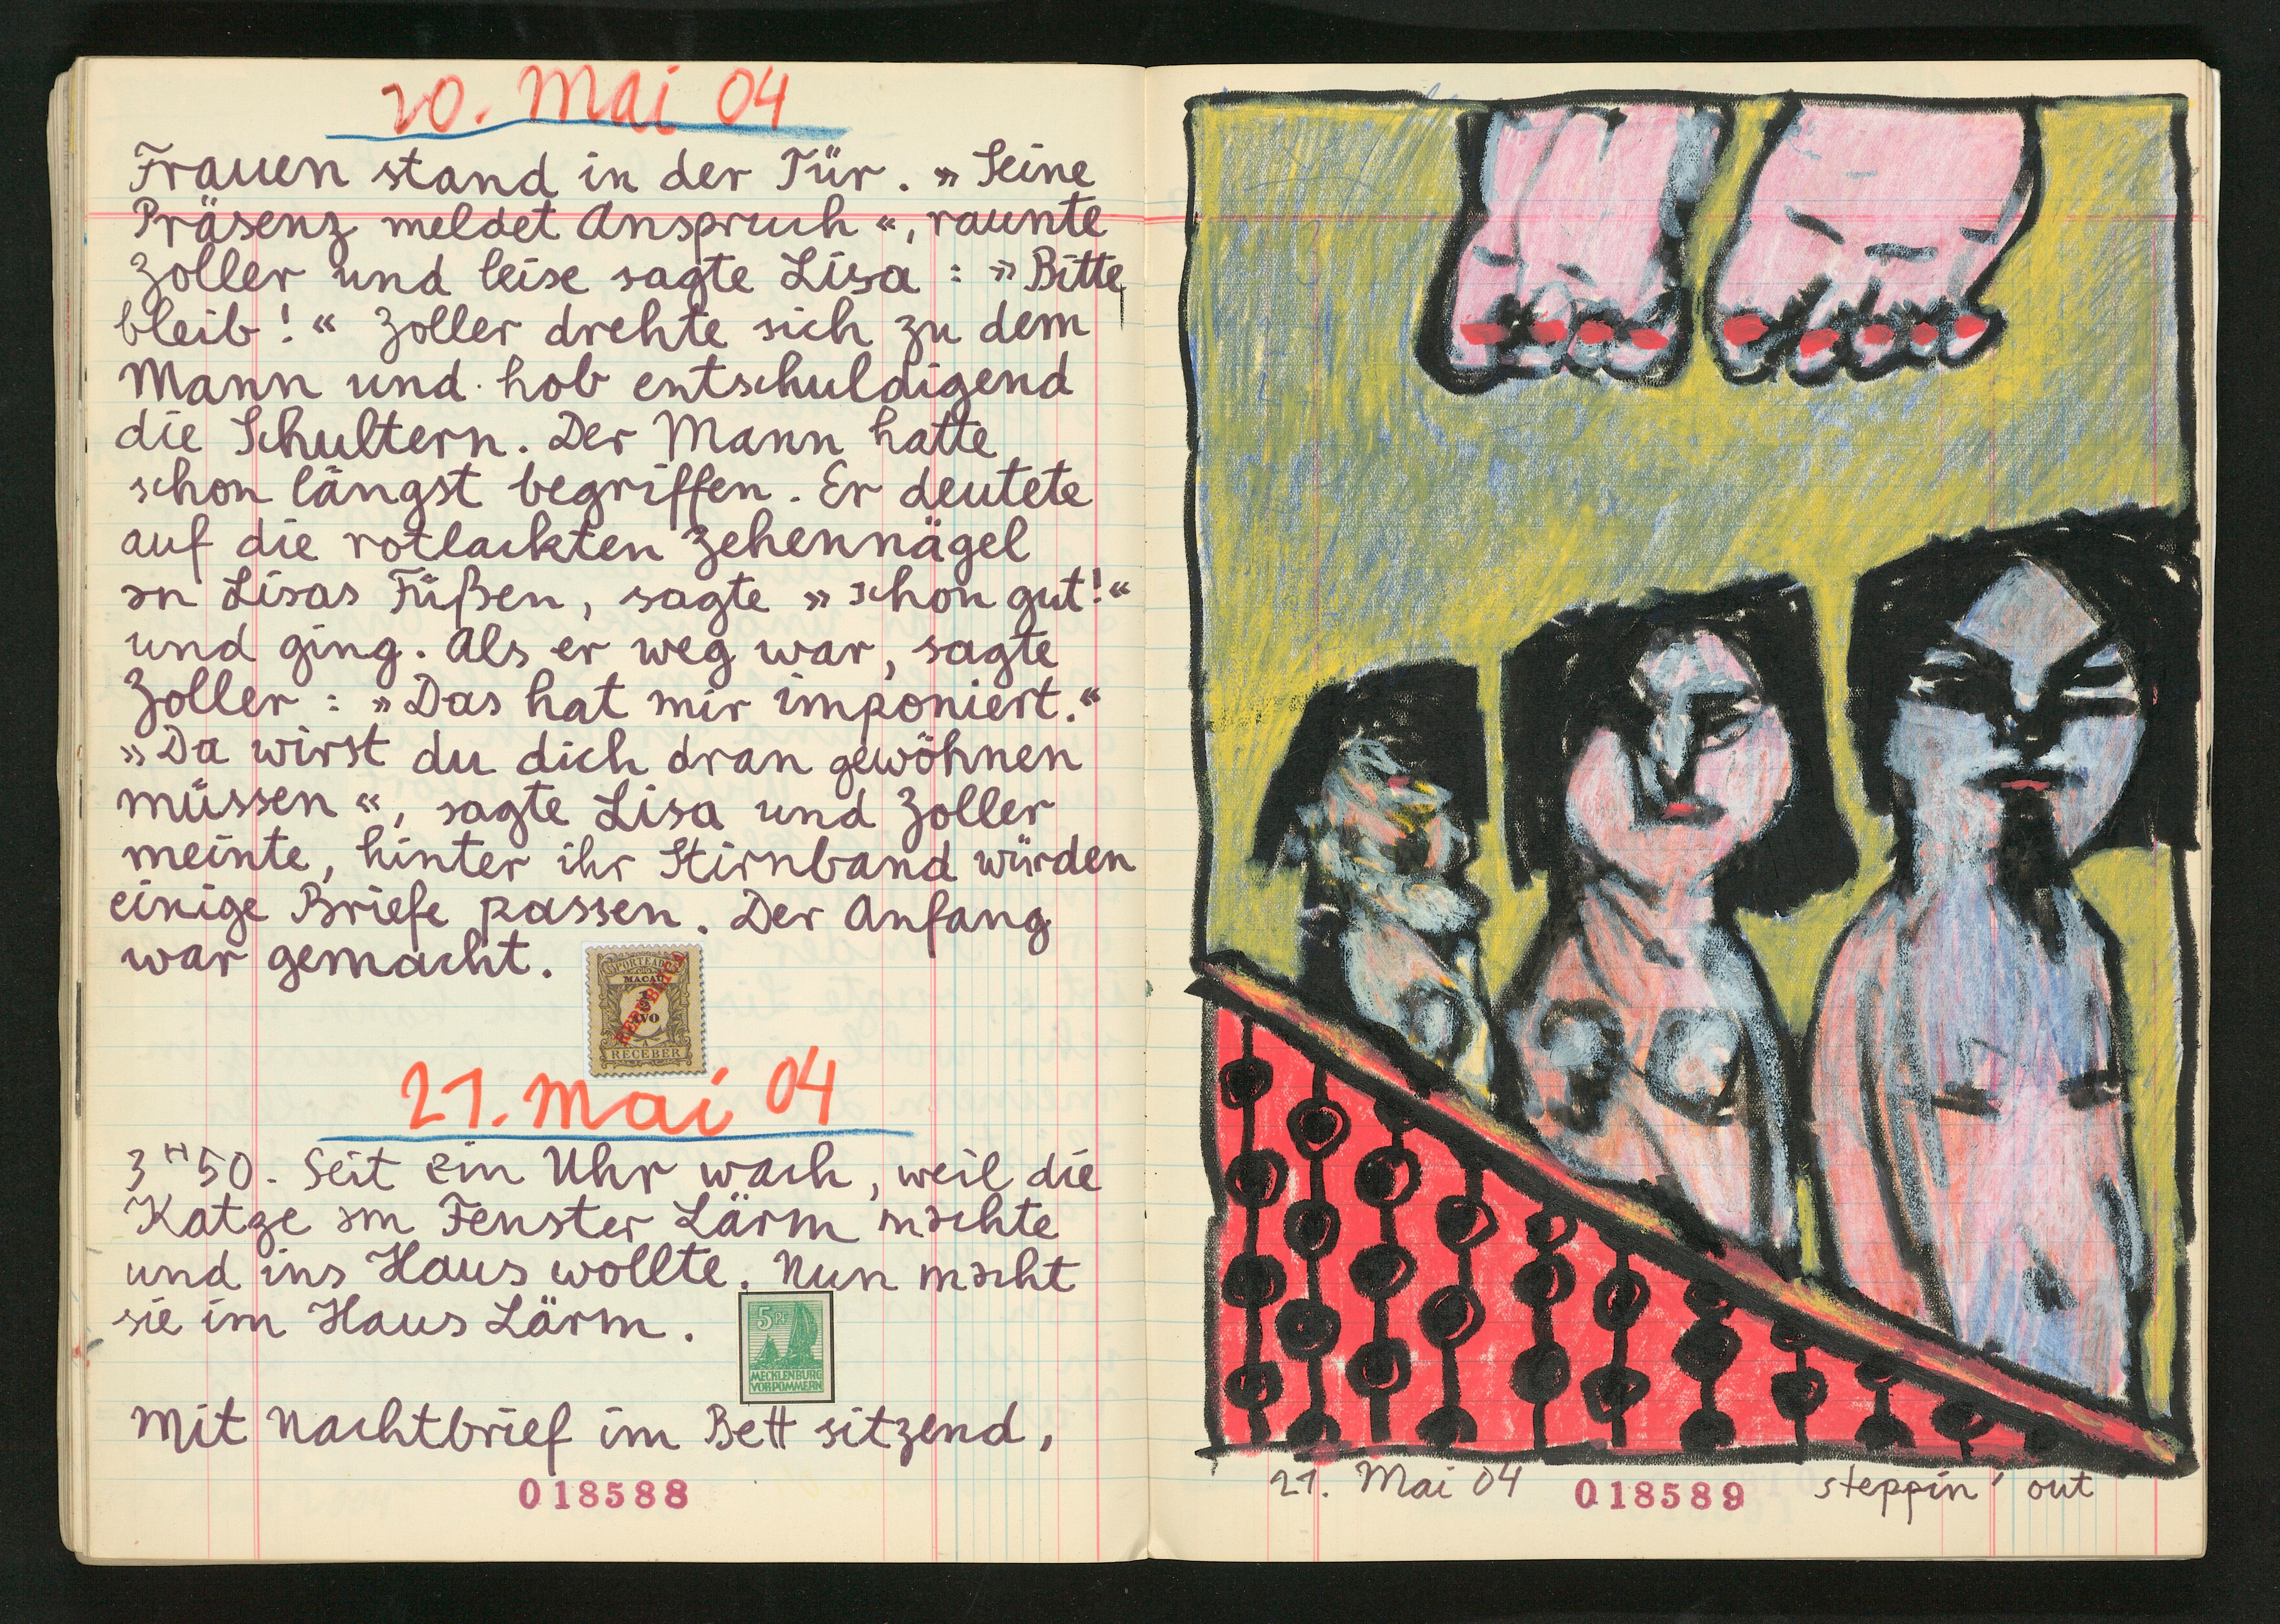 20. Mai 04
Frauen stand in der Tür. » Seine
Präsenz meldet Anspruch «, raunte
Zoller und leise sagte Lisa : » Bitte
bleib ! « Zoller drehte sich zu dem
Mann und hob entschuldigend
die Schultern. Der Mann hatte
schon längst begriffen. Er deutete
auf die rotlackten Zehennägel
an Lisas Füßen, sagte » schon gut! «
und ging. Als er weg war, sagte
Zoller : » Das hat mir imponiert. «
» Da wirst du dich dran gewöhnen
müssen «, sagte Lisa und Zoller
meinte, hinter ihr Stirnband würden
einige Briefe passen. Der Anfang
war gemacht.
PORTEADO
MACAU
REPUBLICA
AVO
A
RECEBER
21. Mai 04
3 H 50. Seit ein Uhr wach, weil die
Katze am Fenster Lärm machte
und ins Haus wollte. Nun macht
sie im Haus Lärm.
5 Pf
MECKLENBURG
VORPOMMERN
Mit Nachtbrief im Bett sitzend,
018588
21. Mai 04 018589 steppin' out